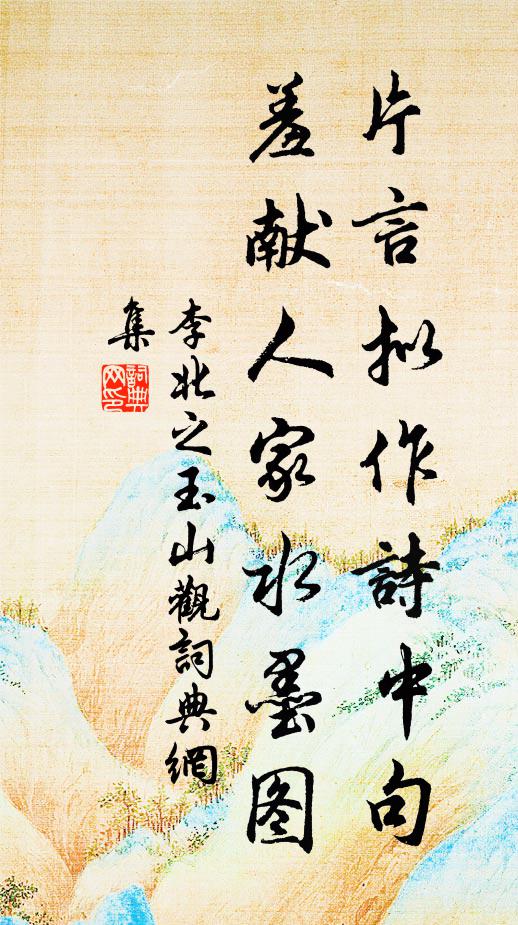 片言拟作詩中句
羞献人家水墨图
李北之玉山觀詞典網
集
詞典
网印